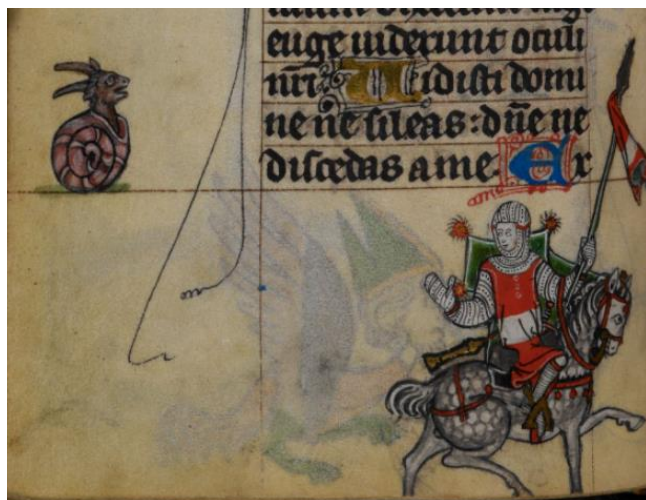 euge uiderunt oculi
nr̄i Uidisti domi
ne ne sileas: dn̄e ne
discedas a me Ex